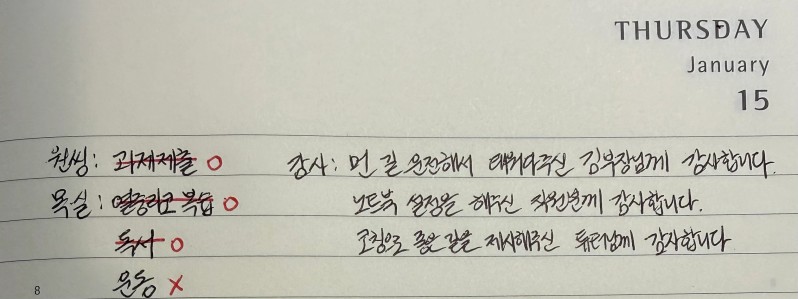 THURSDAY
January
15
원씽: 과제제출 O 감사: 먼 길 운전해서 태워다주신 김부장님께 감사합니다.
목실: 열중리고 복습 O 노트북 설정을 해주신 직원분께 감사합니다.
독서 O 코칭으로 좋은 길을 제시해주신 튜터님께 감사합니다
운동 X
8